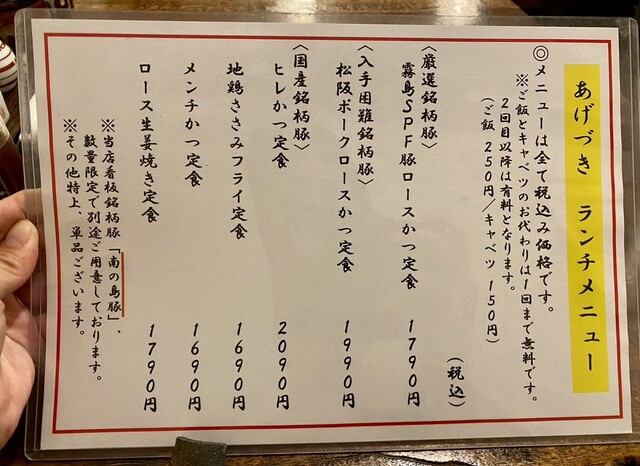 あげづき ランチメニュー
◎メニューは全て税込み価格です。
※ご飯とキャベツのお代わりは1回まで無料です。
2回目以降は有料となります。
(ご飯 250円/キャベツ 150円)
(税込)
〈厳選銘柄豚〉
霧島SPF豚ロースかつ定食 1790円
〈入手困難銘柄豚〉
松阪ポークロースかつ定食 1990円
〈国産銘柄豚〉
ヒレかつ定食 2090円
地鶏ささみフライ定食 1690円
メンチかつ定食 1690円
ロース生姜焼き定食 1790円
※当店看板銘柄豚「南の島豚」、
数量限定で別途ご用意しております。
※その他特上、単品ございます。